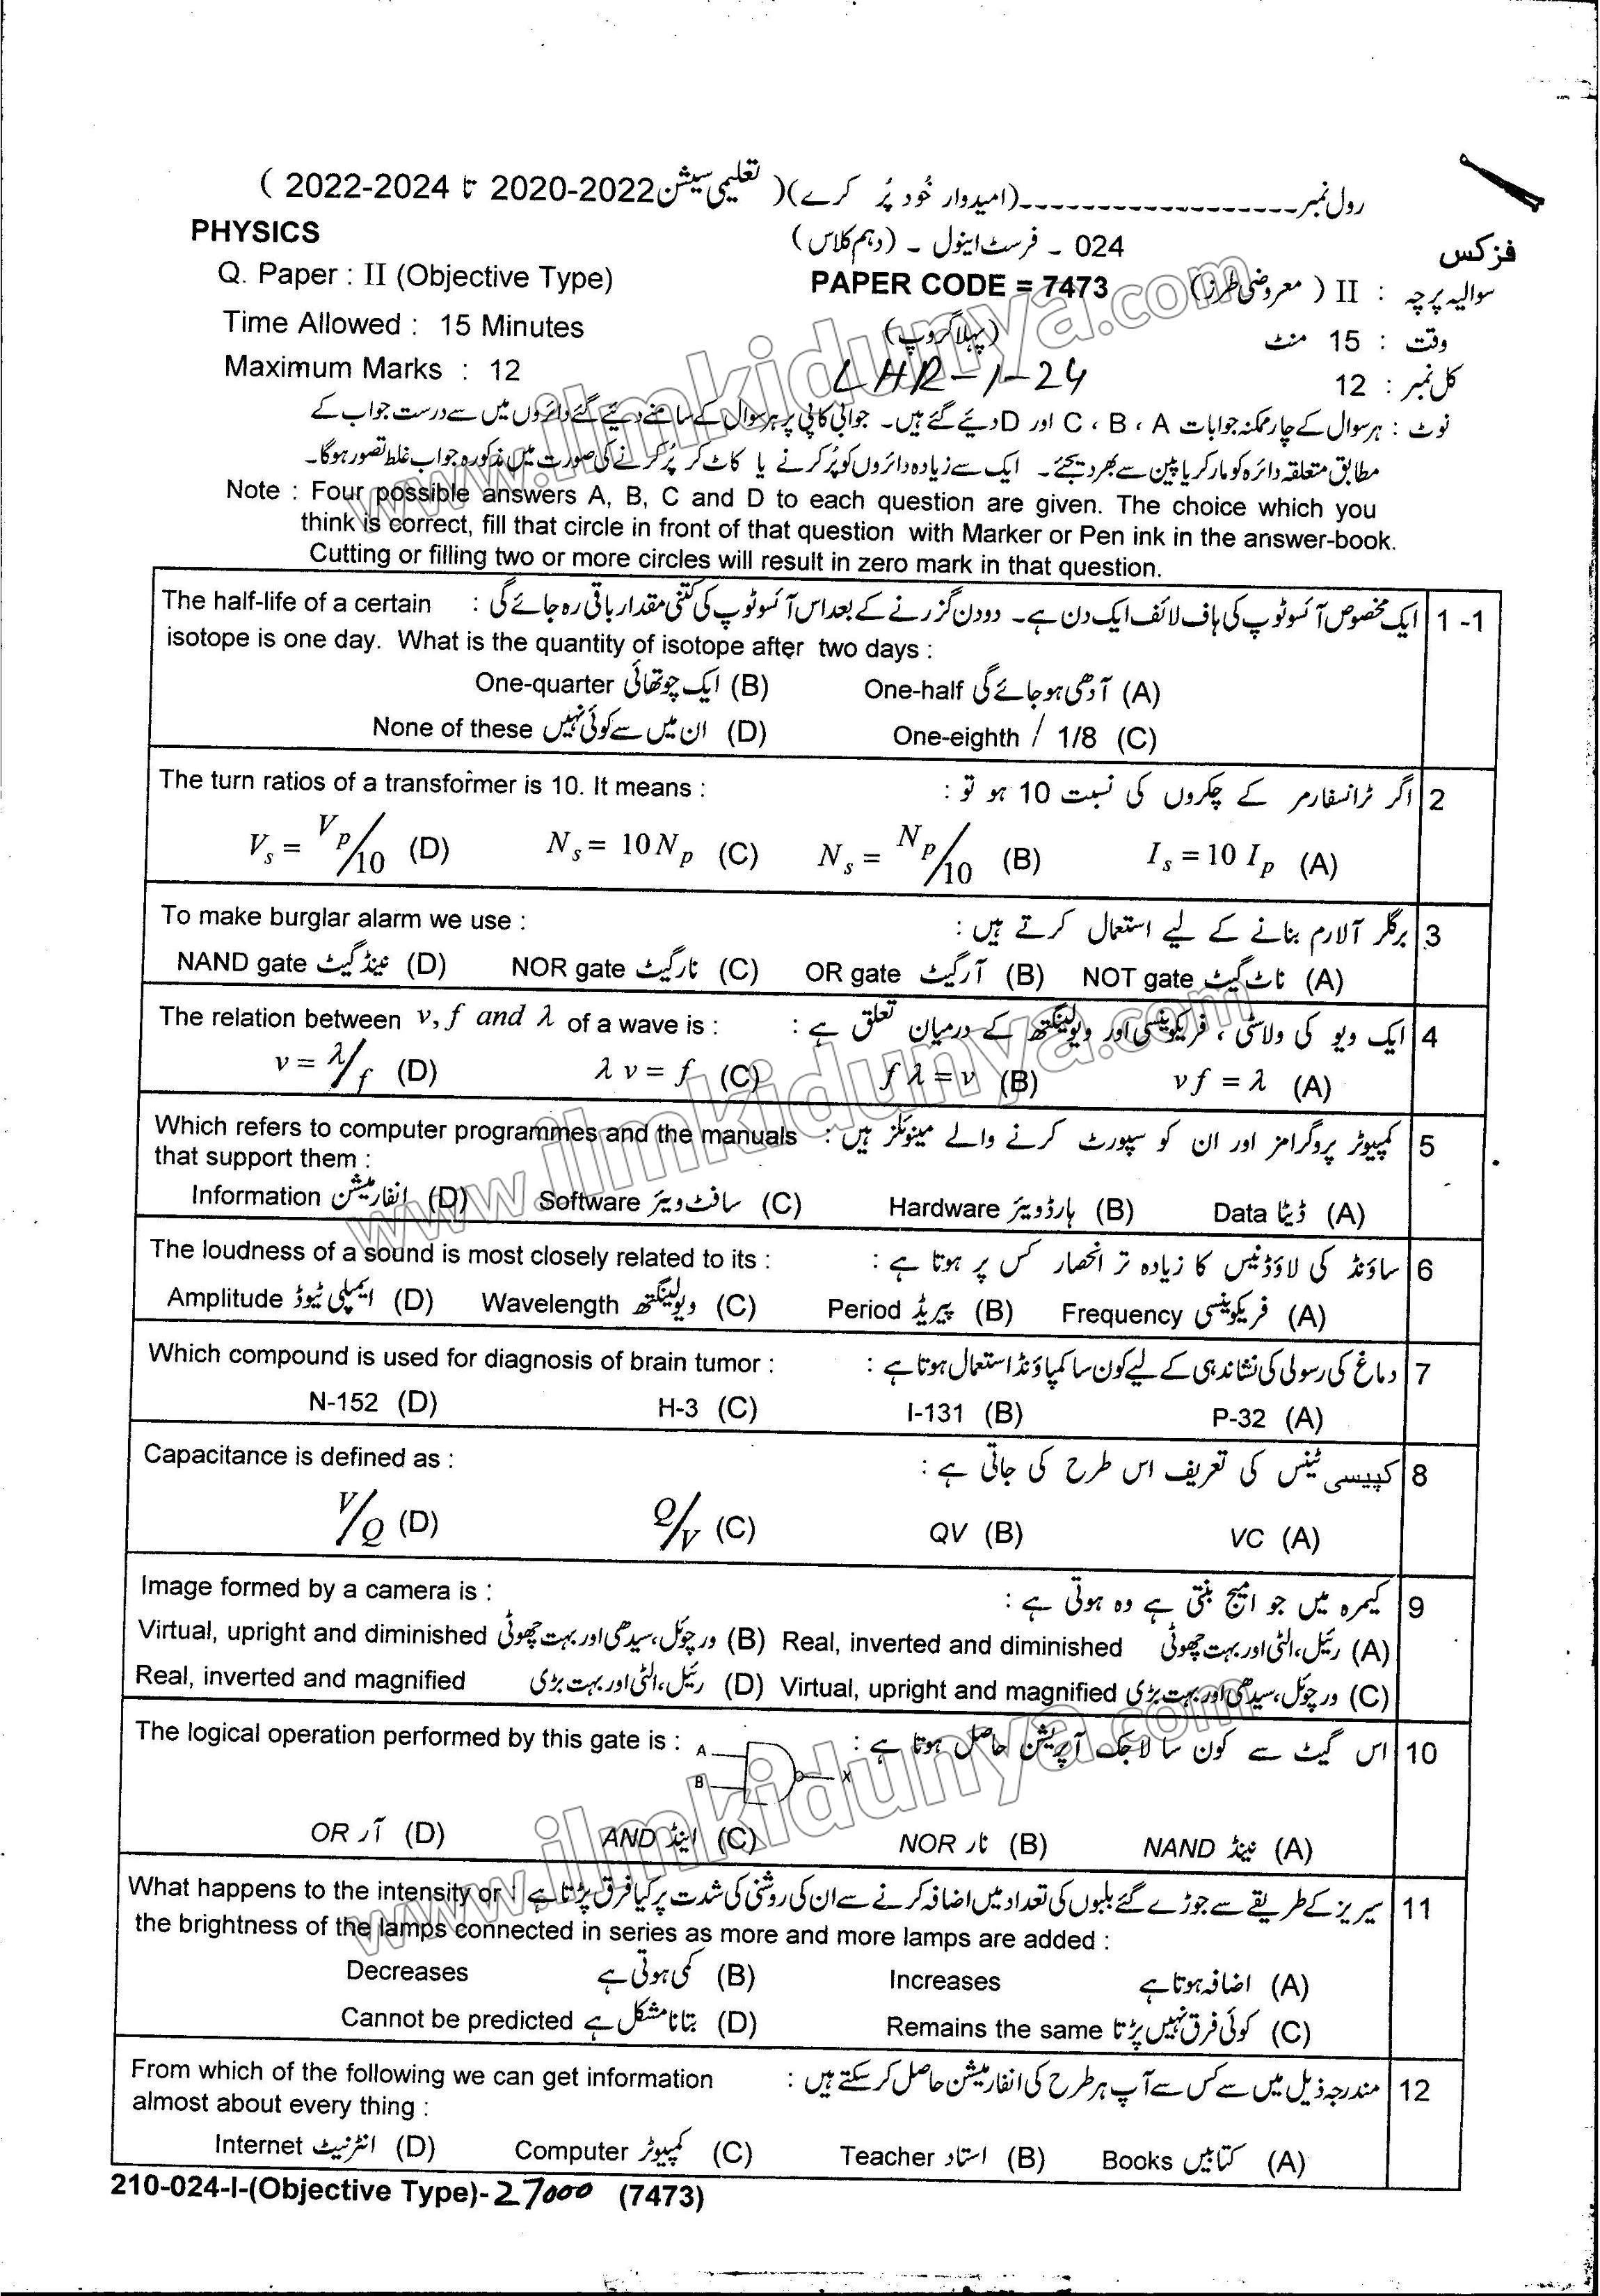 رول نمبر-------------------(امیدوار خُود پُر کرے)( تعلیمی سیشن 2022-2020 تا 2024-2022 )
PHYSICS 024 - فرسٹ اینول - (دہم کلاس) فزکس
Q. Paper : II (Objective Type) PAPER CODE = 7473 سوالیہ پرچہ : II ( معروضی طرز )
Time Allowed : 15 Minutes (پہلا گروپ) وقت : 15 منٹ
Maximum Marks : 12 LHR-1-24 کل نمبر : 12
نوٹ : ہر سوال کے چار ممکنہ جوابات C ، B ، A اور D دئیے گئے ہیں۔ جوابی کاپی پر ہر سوال کے سامنے دئیے گئے دائروں میں سے درست جواب کے
مطابق متعلقہ دائرہ کو مارکر یا پین سے بھر دیجئے۔ ایک سے زیادہ دائروں کو پُر کرنے یا کاٹ کر پُر کرنے کی صورت میں مذکورہ جواب غلط تصور ہوگا۔
Note : Four possible answers A, B, C and D to each question are given. The choice which you
think is correct, fill that circle in front of that question with Marker or Pen ink in the answer-book.
Cutting or filling two or more circles will result in zero mark in that question.
1 -1 ایک مخصوص آئسوٹوپ کی ہاف لائف ایک دن ہے۔ دو دن گزرنے کے بعد اس آئسوٹوپ کی کتنی مقدار باقی رہ جائے گی : The half-life of a certain
isotope is one day. What is the quantity of isotope after two days :
One-quarter ایک چوتھائی (B) One-half آدھی ہو جائے گی (A)
None of these ان میں سے کوئی نہیں (D) One-eighth / 1/8 (C)
The turn ratios of a transformer is 10. It means : اگر ٹرانسفارمر کے چکروں کی نسبت 10 ہو تو : 2
V_s = V_p/10 (D) N_s = 10 N_p (C) N_s = N_p/10 (B) I_s = 10 I_p (A)
To make burglar alarm we use : برگلر آلارم بنانے کے لیے استعمال کرتے ہیں : 3
NAND gate نینڈ گیٹ (D) NOR gate نار گیٹ (C) OR gate آر گیٹ (B) NOT gate ناٹ گیٹ (A)
The relation between v, f and λ of a wave is : ایک ویو کی ولاسٹی ، فریکوئنسی اور ویولینگتھ کے درمیان تعلق ہے : 4
v = λ/f (D) λ v = f (C) f λ = v (B) v f = λ (A)
Which refers to computer programmes and the manuals : کمپیوٹر پروگرامز اور ان کو سپورٹ کرنے والے مینوئلز ہیں 5
that support them :
Information انفارمیشن (D) Software سافٹ ویئر (C) Hardware ہارڈویئر (B) Data ڈیٹا (A)
The loudness of a sound is most closely related to its : ساؤنڈ کی لاؤڈنیس کا زیادہ تر انحصار کس پر ہوتا ہے : 6
Amplitude ایمپلی ٹیوڈ (D) Wavelength ویولینگتھ (C) Period پیریڈ (B) Frequency فریکوئنسی (A)
Which compound is used for diagnosis of brain tumor : دماغ کی رسولی کی نشاندہی کے لیے کون سا کمپاؤنڈ استعمال ہوتا ہے : 7
N-152 (D) H-3 (C) I-131 (B) P-32 (A)
Capacitance is defined as : کپیسی ٹینس کی تعریف اس طرح کی جاتی ہے : 8
V/Q (D) Q/V (C) QV (B) VC (A)
Image formed by a camera is : کیمرہ میں جو امیج بنتی ہے وہ ہوتی ہے : 9
Virtual, upright and diminished ورچوئل، سیدھی اور بہت چھوٹی (B) Real, inverted and diminished رئیل، الٹی اور بہت چھوٹی (A)
Real, inverted and magnified رئیل، الٹی اور بہت بڑی (D) Virtual, upright and magnified ورچوئل، سیدھی اور بہت بڑی (C)
The logical operation performed by this gate is : اس گیٹ سے کون سا لاجک آپریشن حاصل ہوتا ہے : 10
A
B
X
OR آر (D) AND اینڈ (C) NOR نار (B) NAND نینڈ (A)
What happens to the intensity or : سیریز کے طریقے سے جوڑے گئے بلبوں کی تعداد میں اضافہ کرنے سے ان کی روشنی کی شدت پر کیا فرق پڑتا ہے 11
the brightness of the lamps connected in series as more and more lamps are added :
Decreases کمی ہوتی ہے (B) Increases اضافہ ہوتا ہے (A)
Cannot be predicted بتانا مشکل ہے (D) Remains the same کوئی فرق نہیں پڑتا (C)
From which of the following we can get information : مندرجہ ذیل میں سے کس سے آپ ہر طرح کی انفارمیشن حاصل کر سکتے ہیں 12
almost about every thing :
Internet انٹرنیٹ (D) Computer کمپیوٹر (C) Teacher استاد (B) Books کتابیں (A)
210-024-I-(Objective Type)-27000 (7473)
www.ilmkidunya.com
www.ilmkidunya.com
www.ilmkidunya.com